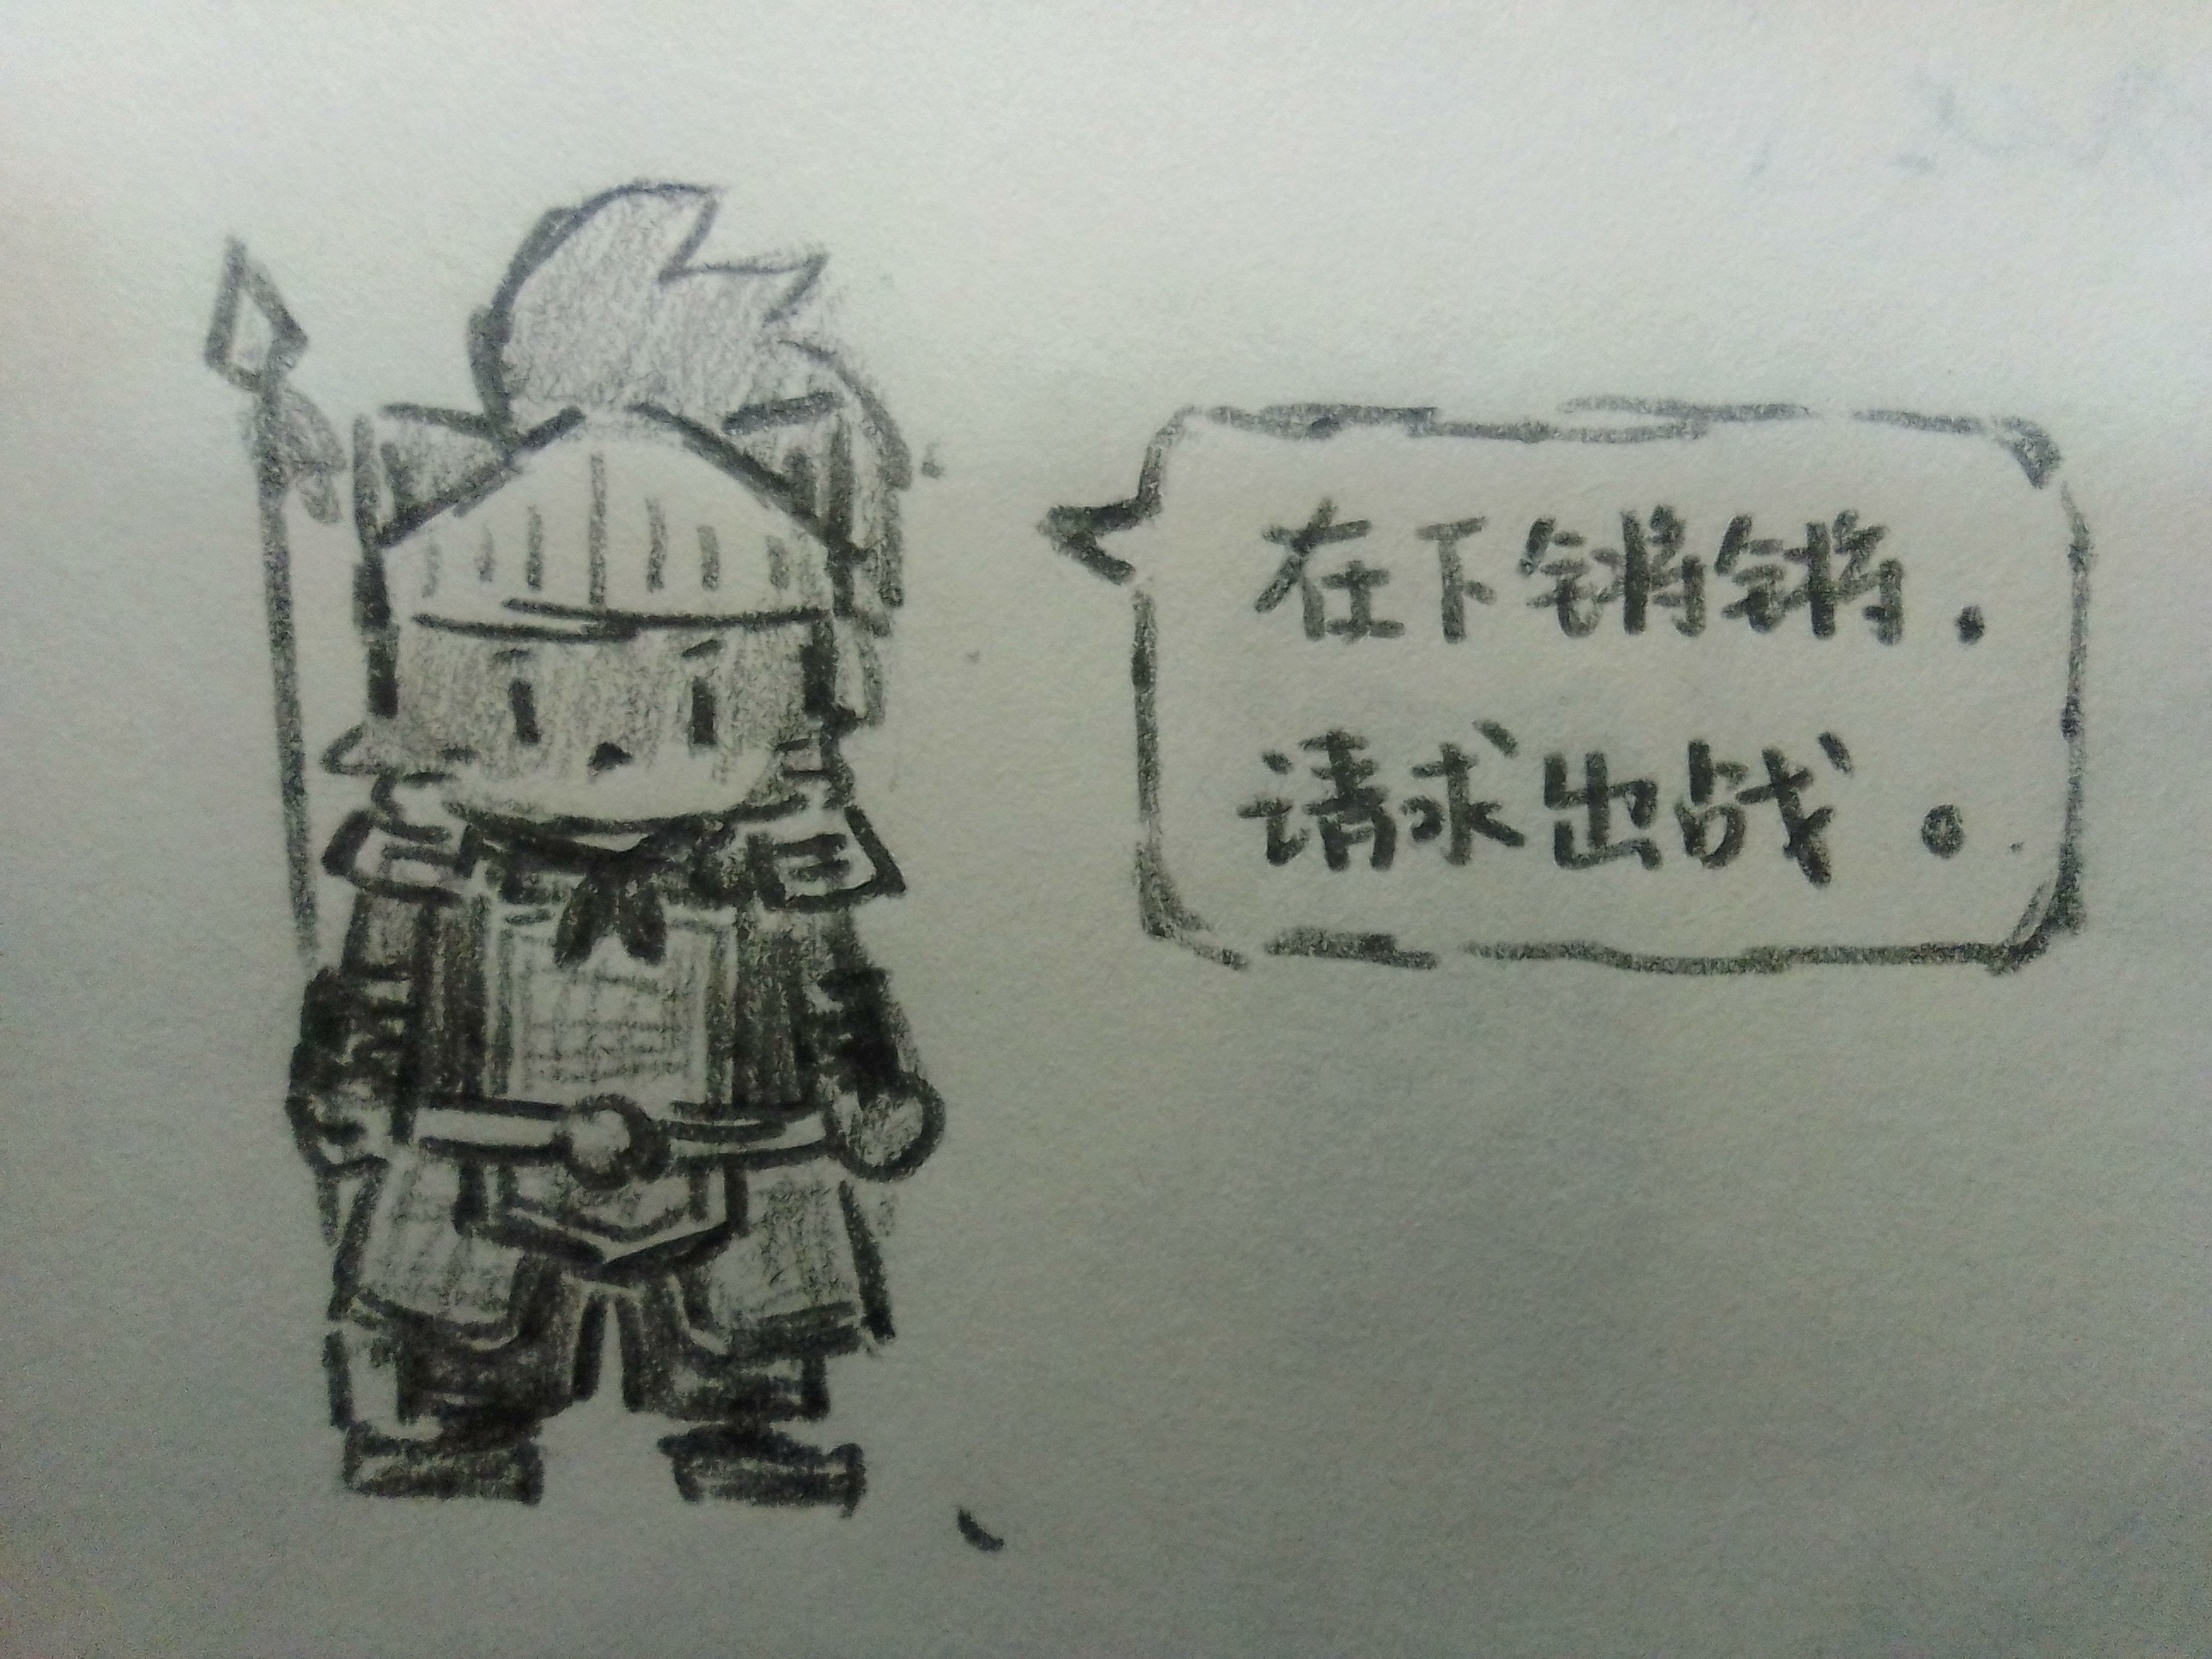 在下锵锵.
请求出战。